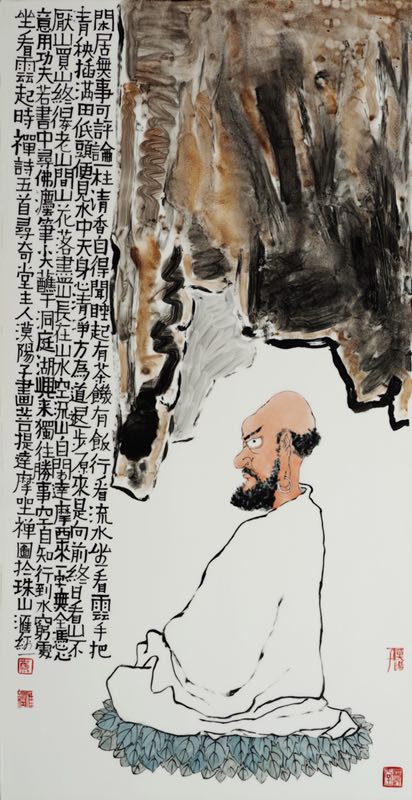 閑居無事可評論一柱清香自得聞睡起有茶餓有飯行看流水坐看雲手把
青秧插滿田低頭便見水中天身心清淨方為道退步原來是向前終日看山不
厭山買山終得老山間山花落盡山長在山水空流山自閑達摩西來一字無全憑心
意用功夫若書中尋佛法筆尖蘸干洞庭湖興來獨往勝事空自知行到水窮處
坐看雲起時禪詩五首尋奇堂主人漢陽子畫菩提達摩坐禪圖於珠山